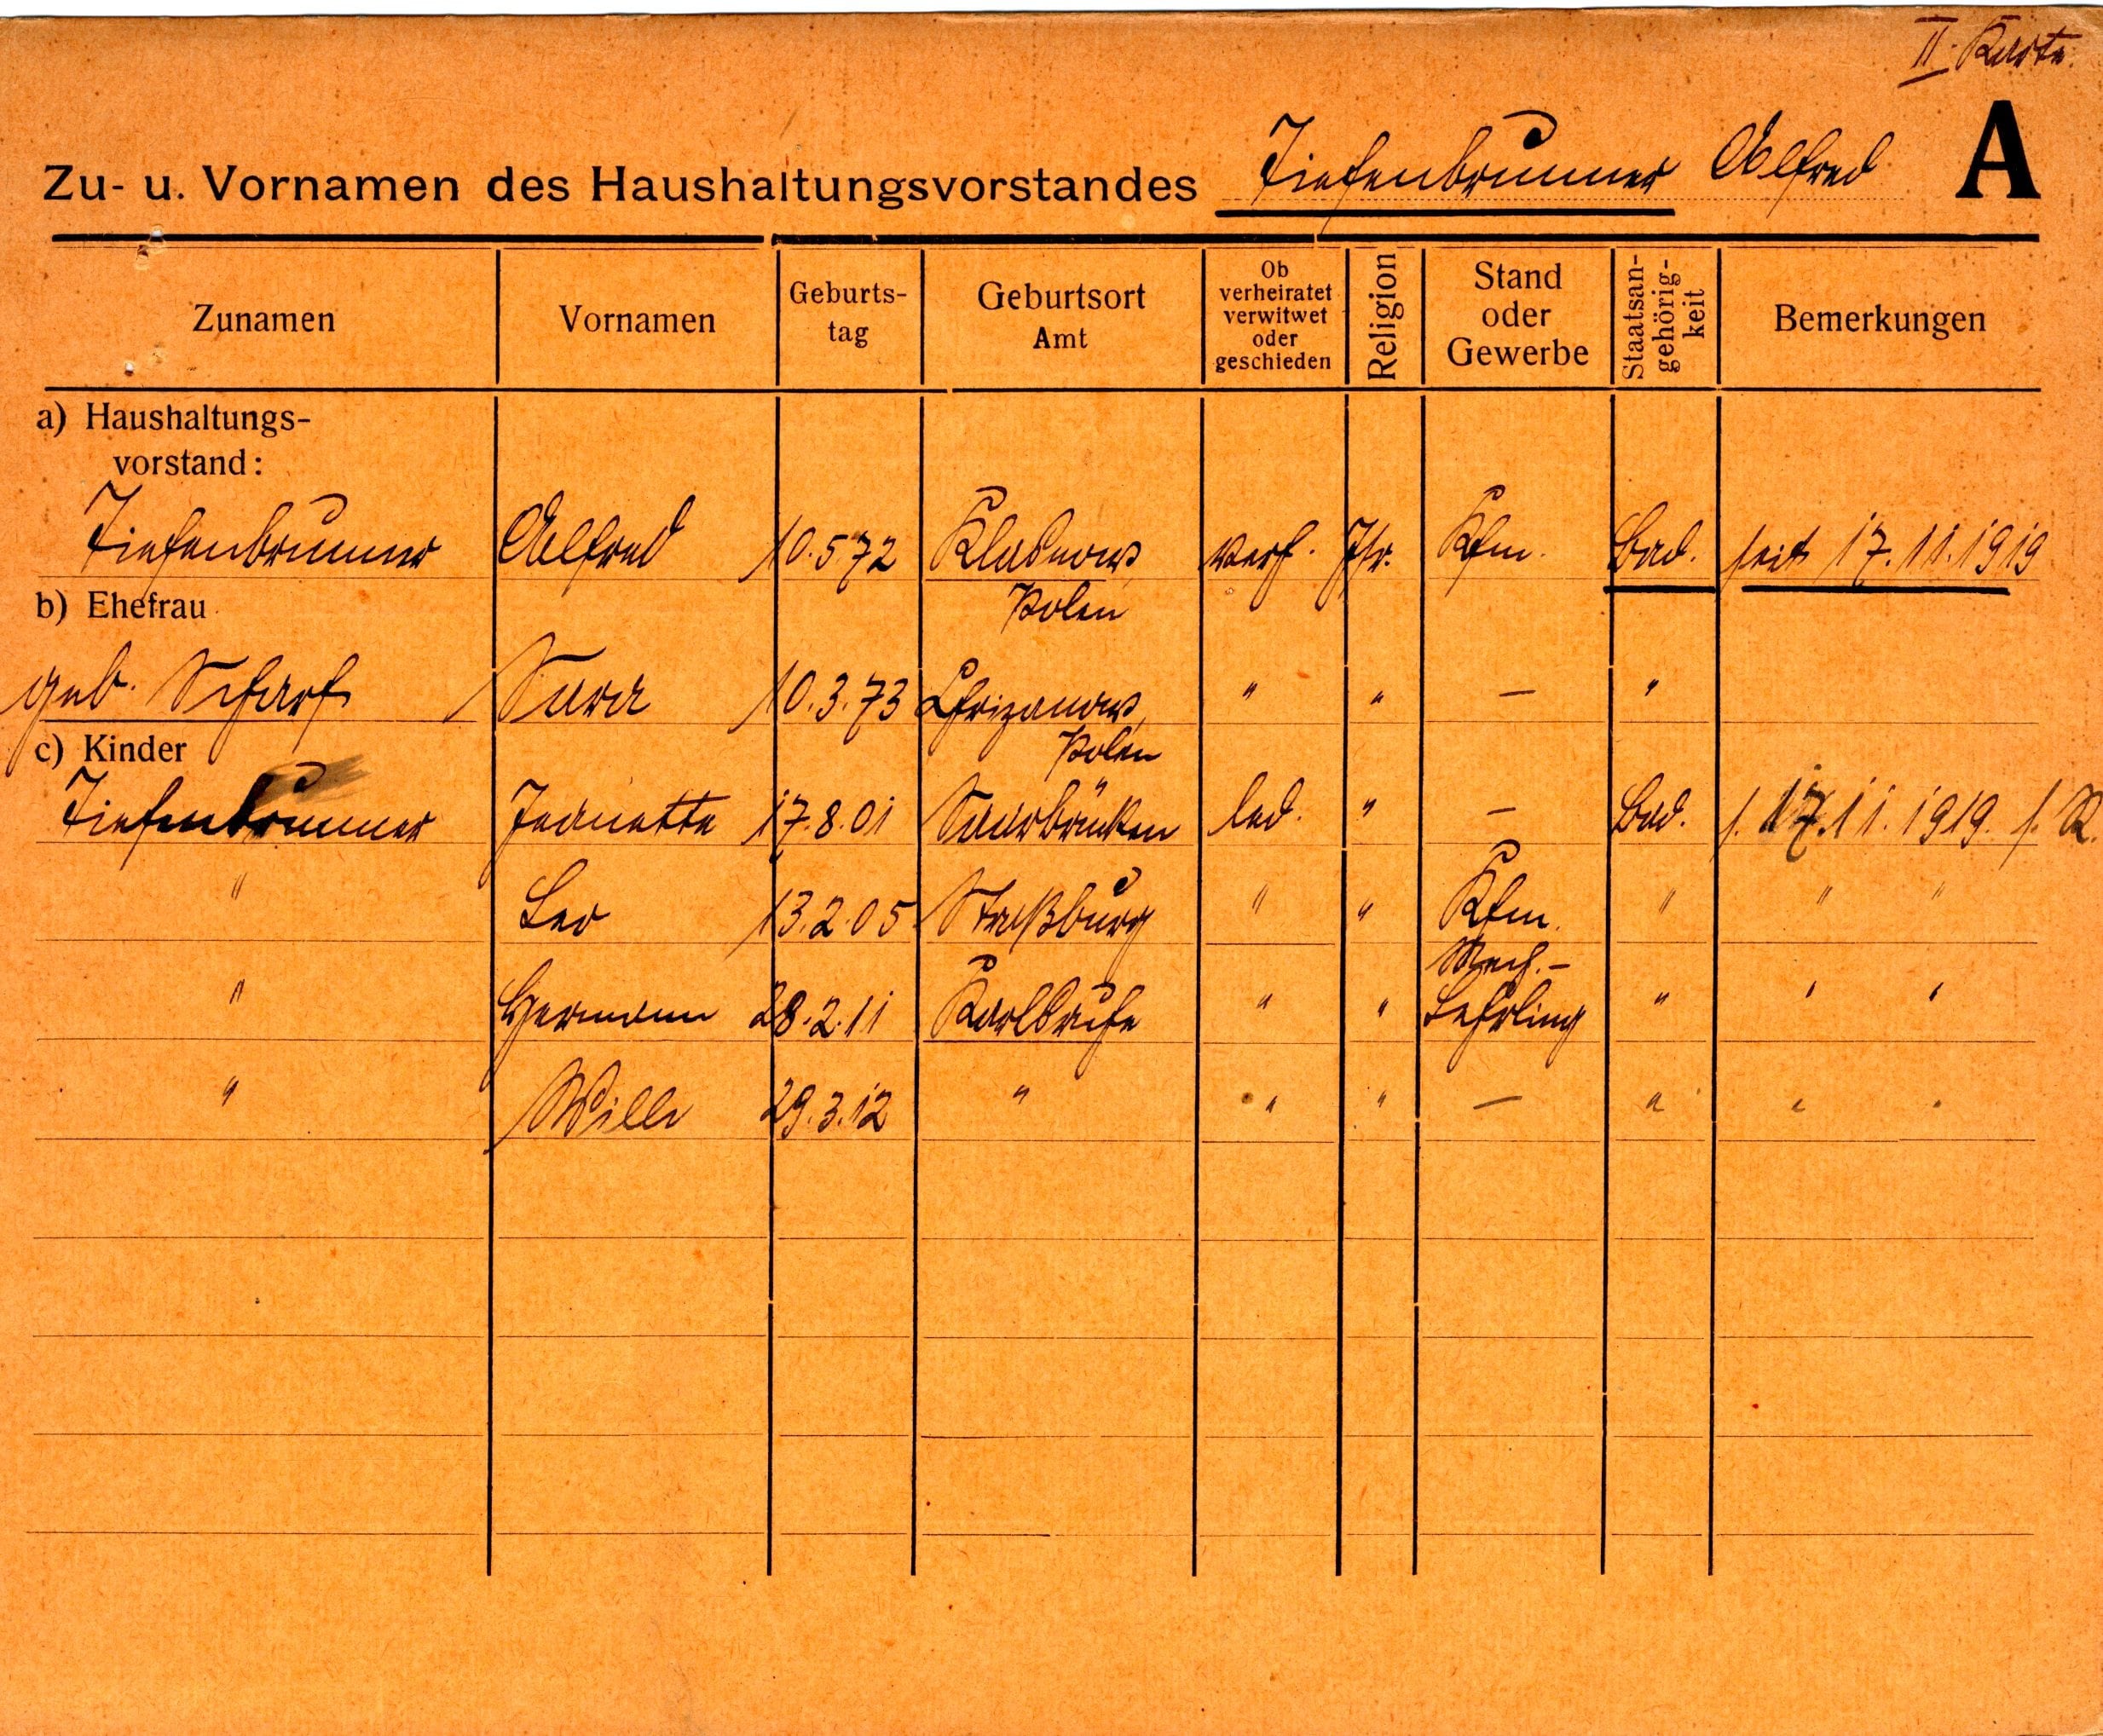 II. Karte.
Zu- u. Vornamen des Haushaltungsvorstandes Tiefenbrunner Alfred A
Zunamen Vornamen Geburts-tag Geburtsort Amt Ob verheiratet verwitwet oder geschieden Religion Stand oder Gewerbe Staatsan-gehörig-keit Bemerkungen
a) Haushaltungs-
vorstand:
Tiefenbrunner Alfred 10.5.72 verh. Isr. Kfm. Bad. seit 17.11.1919
Polen
b) Ehefrau
geb. Scharf Sara 10.3.73 " " — "
Polen
c) Kinder
Tiefenbrunner Jeanette 17.8.01 Saarbrücken led. " — Bad. s. 17.11.1919. s. A.
" Leo 13.2.05 Straßburg " " Kfm. " " "
" Hermann 28.2.11 Karlsruhe " " Mech.-
Lehrling " " "
" Willi 29.3.12 " " " — " " "